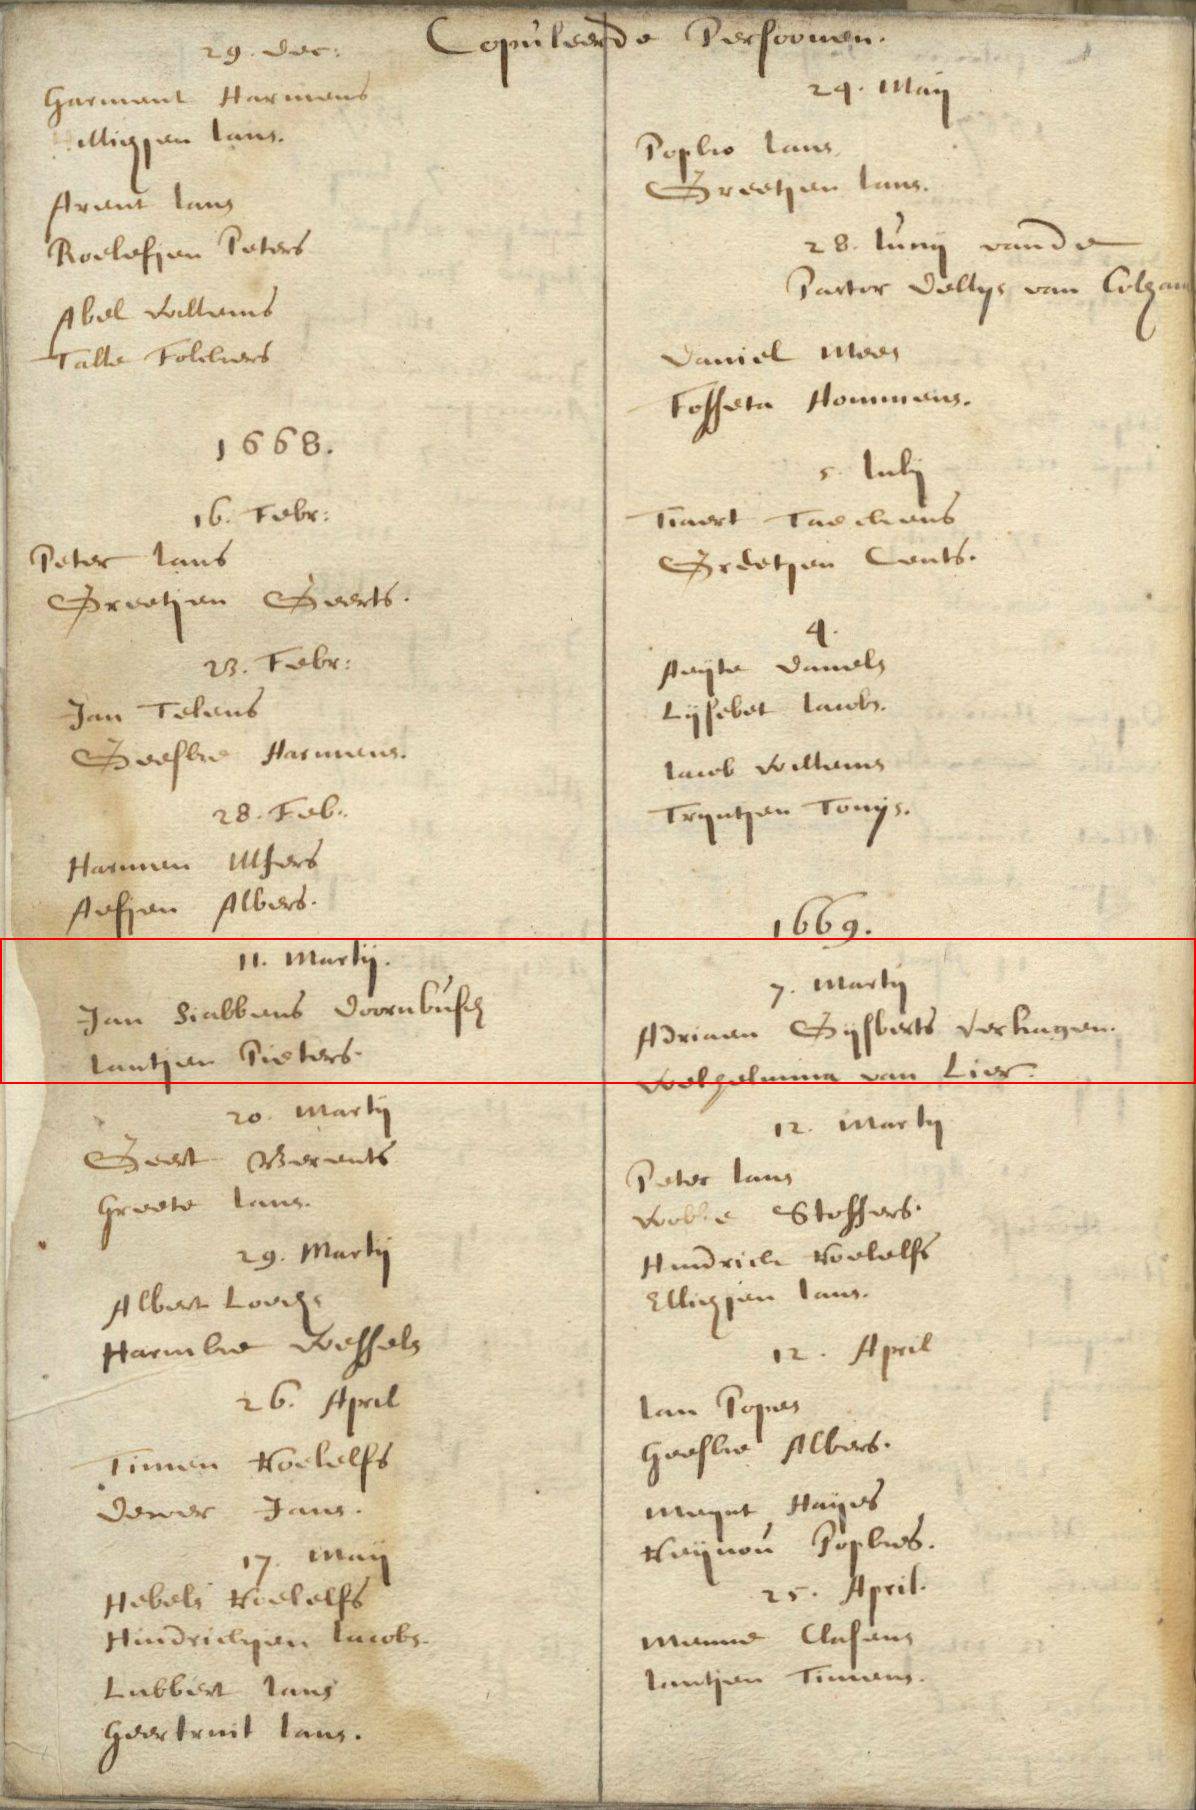 Copuleerde Persoonen.
29. Dec:
Harmant Harmens
Illichjen Jans.
Arent Jans
Roelefjen Peters
Abel Willems
Talle Folckers
1668.
16. Febr:
Peter Jans
Greetjen Geerts.
23. Febr:
Jan Tekens
Geeske Harmens.
28. Feb:
Harmen Ulfers
Aefjen Albers.
11. Martij.
Jan Siabbens Doornbusch
Jantjen Pieters.
20. Martij
Geert Berents
Greete Jans.
29. Martij
Albert Loechs
Harmke Wessels
26. April
Timen Roelelfs
Dewer Jans.
17. Maij
Hebels Roelelfs
Hindrickjen Jacobs.
Lubbert Jans
Geertruit Jans.
24. Maij
Popko Jans
Greetjen Jans.
28. Junij vande
Pastor Deltys van
Daniel Mees
Fosseta Hommens.
5. Julij
Tiaert Taeckens
Greetjen Cents.
4.
Aeijte Daniels
Lijsebet Jacobs.
Jacob Willems
Tryntjen Tonijs.
1669.
7. Martij
Adriaen Gijsberts Verhagen.
Welhelmina van Lier.
12. Martij
Peter Jans
Wobke Stoffers.
Hindrick Roelelfs
Ellichjen Jans.
12. April
Jan Popes
Geeske Albers.
Meynt Hayes
Reijnou Popkes.
25. April.
Menne Clasens
Jantjen Timens.